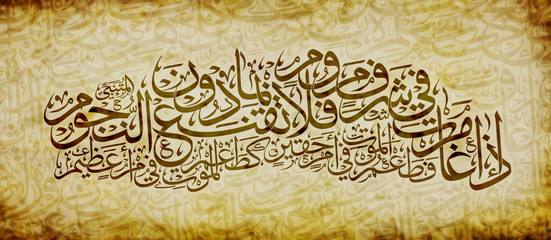 إذا غامرت في شرف مروم فلا تقنع بما دون النجوم
فطعم الموت في أمر حقير كطعم الموت في أمر عظيم
المتنبي